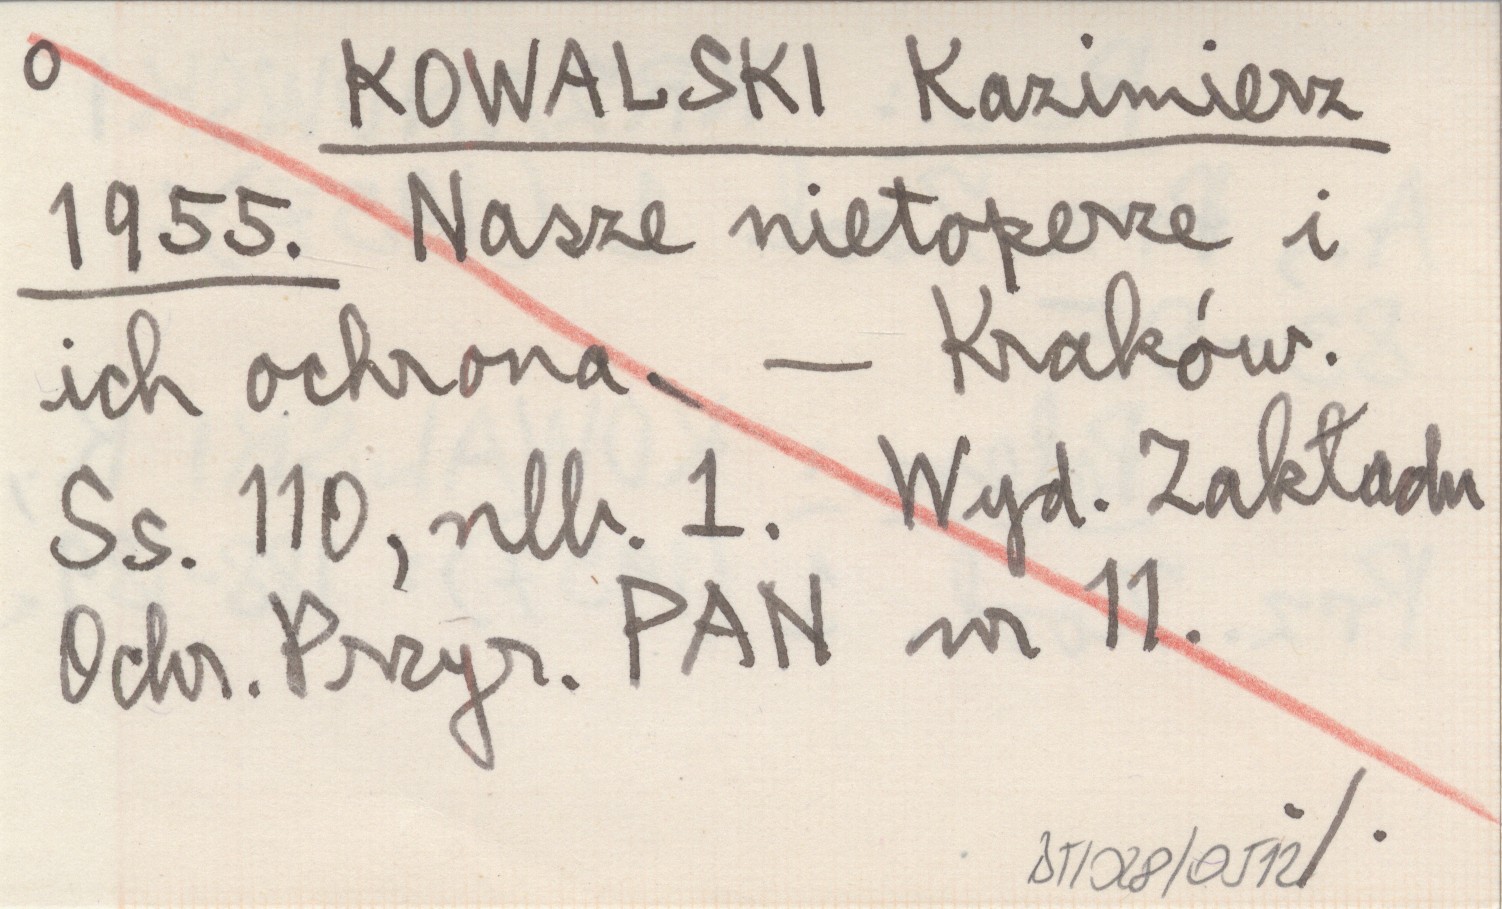 o KOWALSKI Kazimierz
1955. Nasze nietoperze i
ich ochrona. — Kraków.
Ss. 110, nlb. 1. Wyd. Zakładu
Ochr. Przyr. PAN nr 11.
./.
BT/028/0512